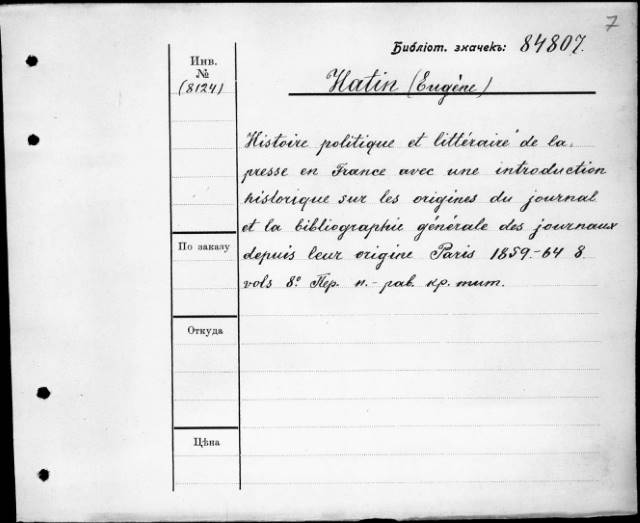 7
Библіот. значекъ: 84807.
Инв.
№
(8124)
Hatin (Eugène)
Histoire politique et littéraire de la
presse en France avec une introduction
historique sur les origines du journal
et la bibliographie générale des journaux
depuis leur origine Paris 1859.-64 8
vols 8º Пер. п.- рав. кр. тит.
По заказу
Откуда
Цѣна